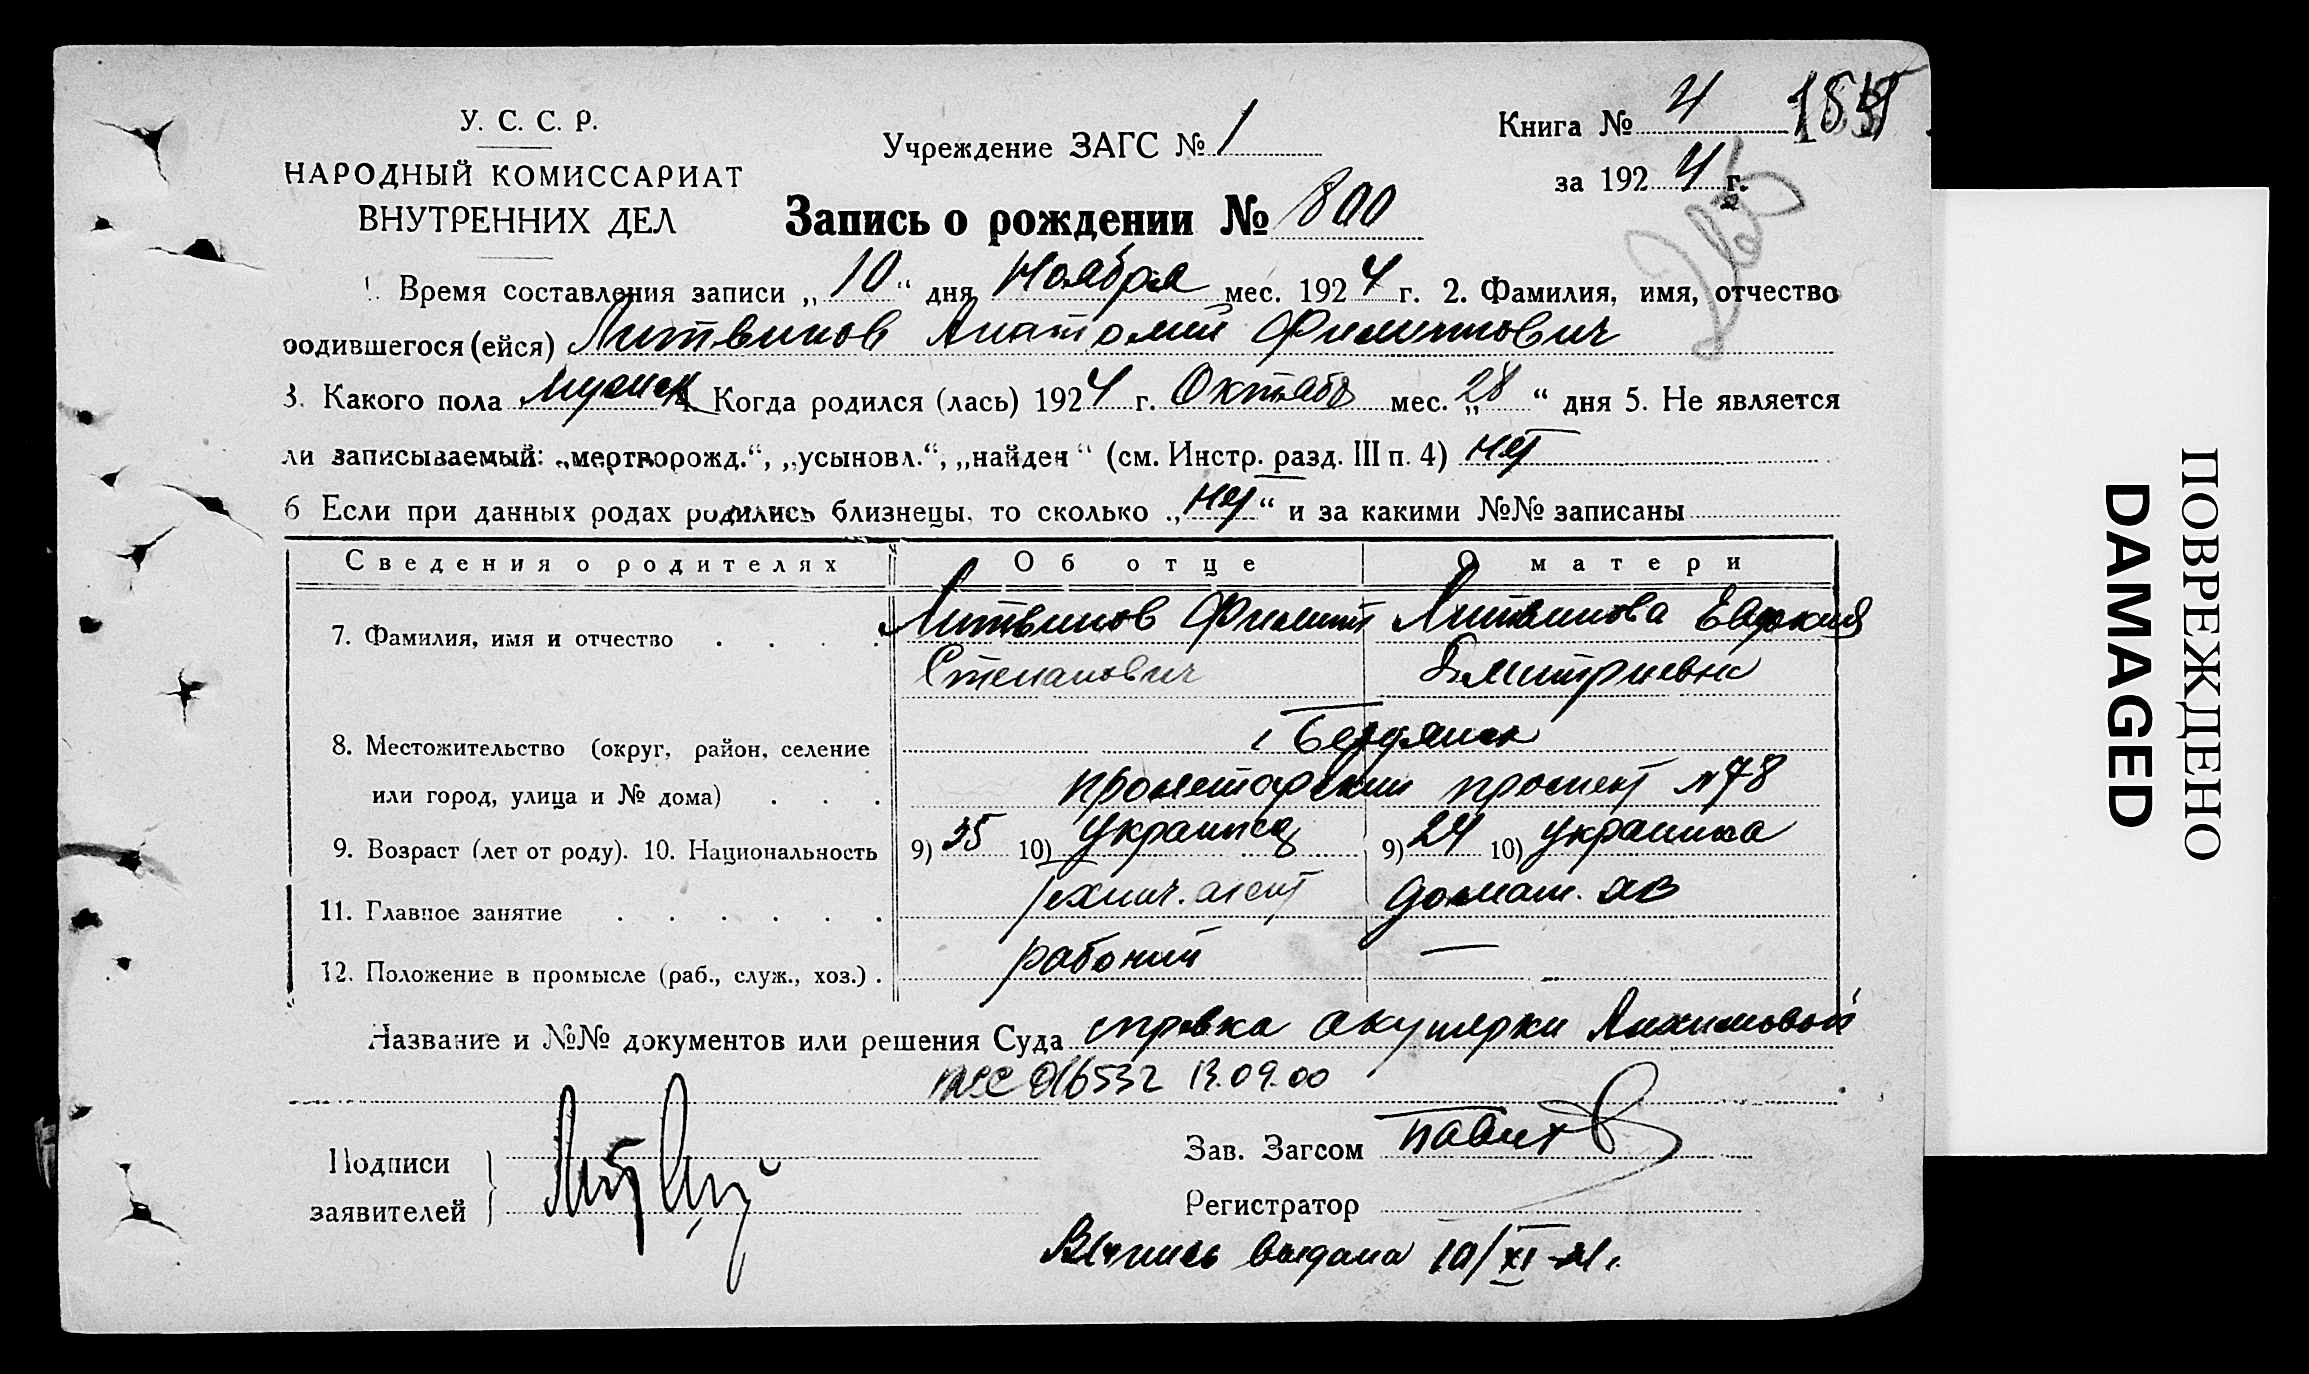 У. С. С. Р.
НАРОДНЫЙ КОМИССАРИАТ
ВНУТРЕННИХ ДЕЛ
Учреждение ЗАГС № 1
Книга № 4
за 1924 г.
Запись о рождении № 800
1. Время составления записи „10“ дня Ноября мес. 1924 г. 2. Фамилия, имя, отчество
родившегося (ейся) Литвинов Анатолий Филиппович
3. Какого пола мужск 4. Когда родился (лась) 1924 г. Октябр мес. „28“ дня 5. Не является
ли записываемый: „мертворожд.“, „усыновл.“, „найден“ (см. Инстр. разд. III п. 4) нет
6 Если при данных родах родились близнецы, то сколько „нет“ и за какими №№ записаны
Сведения о родителях Об отце О матери
7. Фамилия, имя и отчество . . . . Литвинов Филипп Литвинова Евдокия
Степанович Дмитриевна
8. Местожительство (округ, район, селение г Бердянск
или город, улица и № дома) . . . пролетарский проспект №78
9. Возраст (лет от роду). 10. Национальность 9) 35 10) украинец 9) 24 10) украинка
11. Главное занятие . . . . . . Технич. агент домаш. хоз
12. Положение в промысле (раб., служ., хоз.) . рабочий —
Название и №№ документов или решения Суда справка акушерки Анхимовой
016532 13.09.00
Подписи
заявителей
Зав. Загсом
Регистратор
Выпись выдана 10/XI-24 г.
ПОВРЕЖДЕНО
DAMAGED